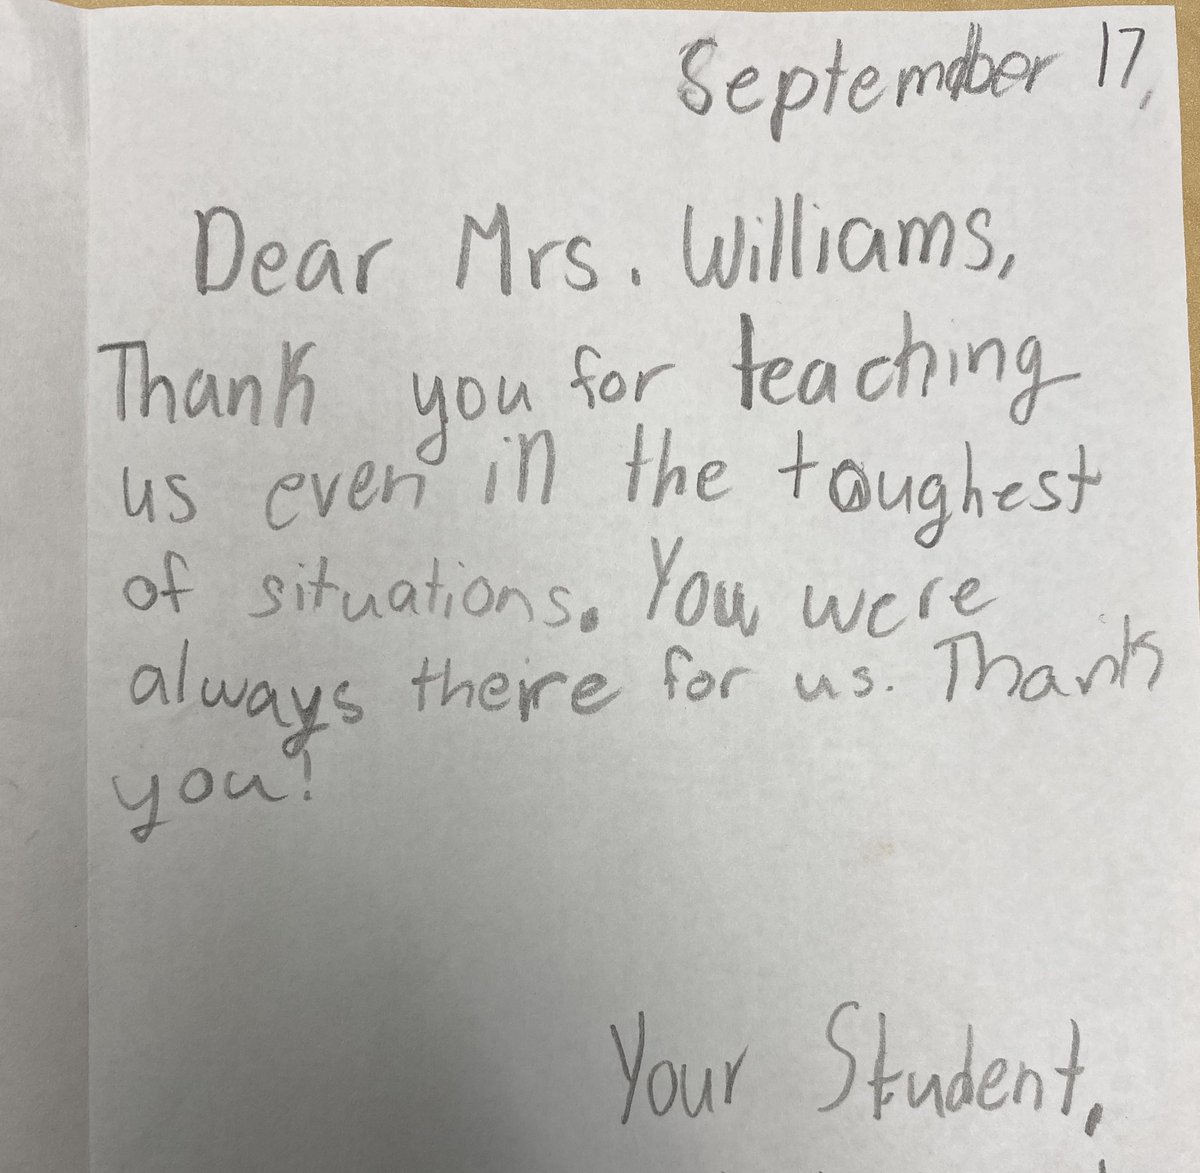 September 17,
Dear Mrs. Williams,
Thank you for teaching
us even in the toughest
of situations. You were
always there for us. Thank
you!
Your Student,